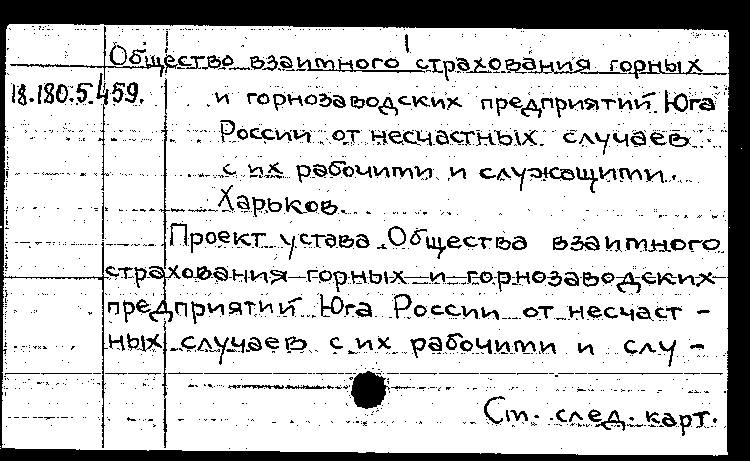 Общество взаимного страхования горных
18.180.5.459.
и горнозаводских предприятий Юга
России от несчастных случаев
с их рабочими и служащими.
Харьков.
Проект устава Общества взаимного
страхования горных и горнозаводских
предприятий Юга России от несчаст-
ных случаев с их рабочими и слу-
См. след. карт.